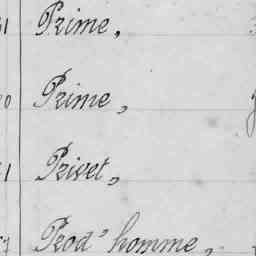 Prime,
Prime,
Privet,
Prod'homme,